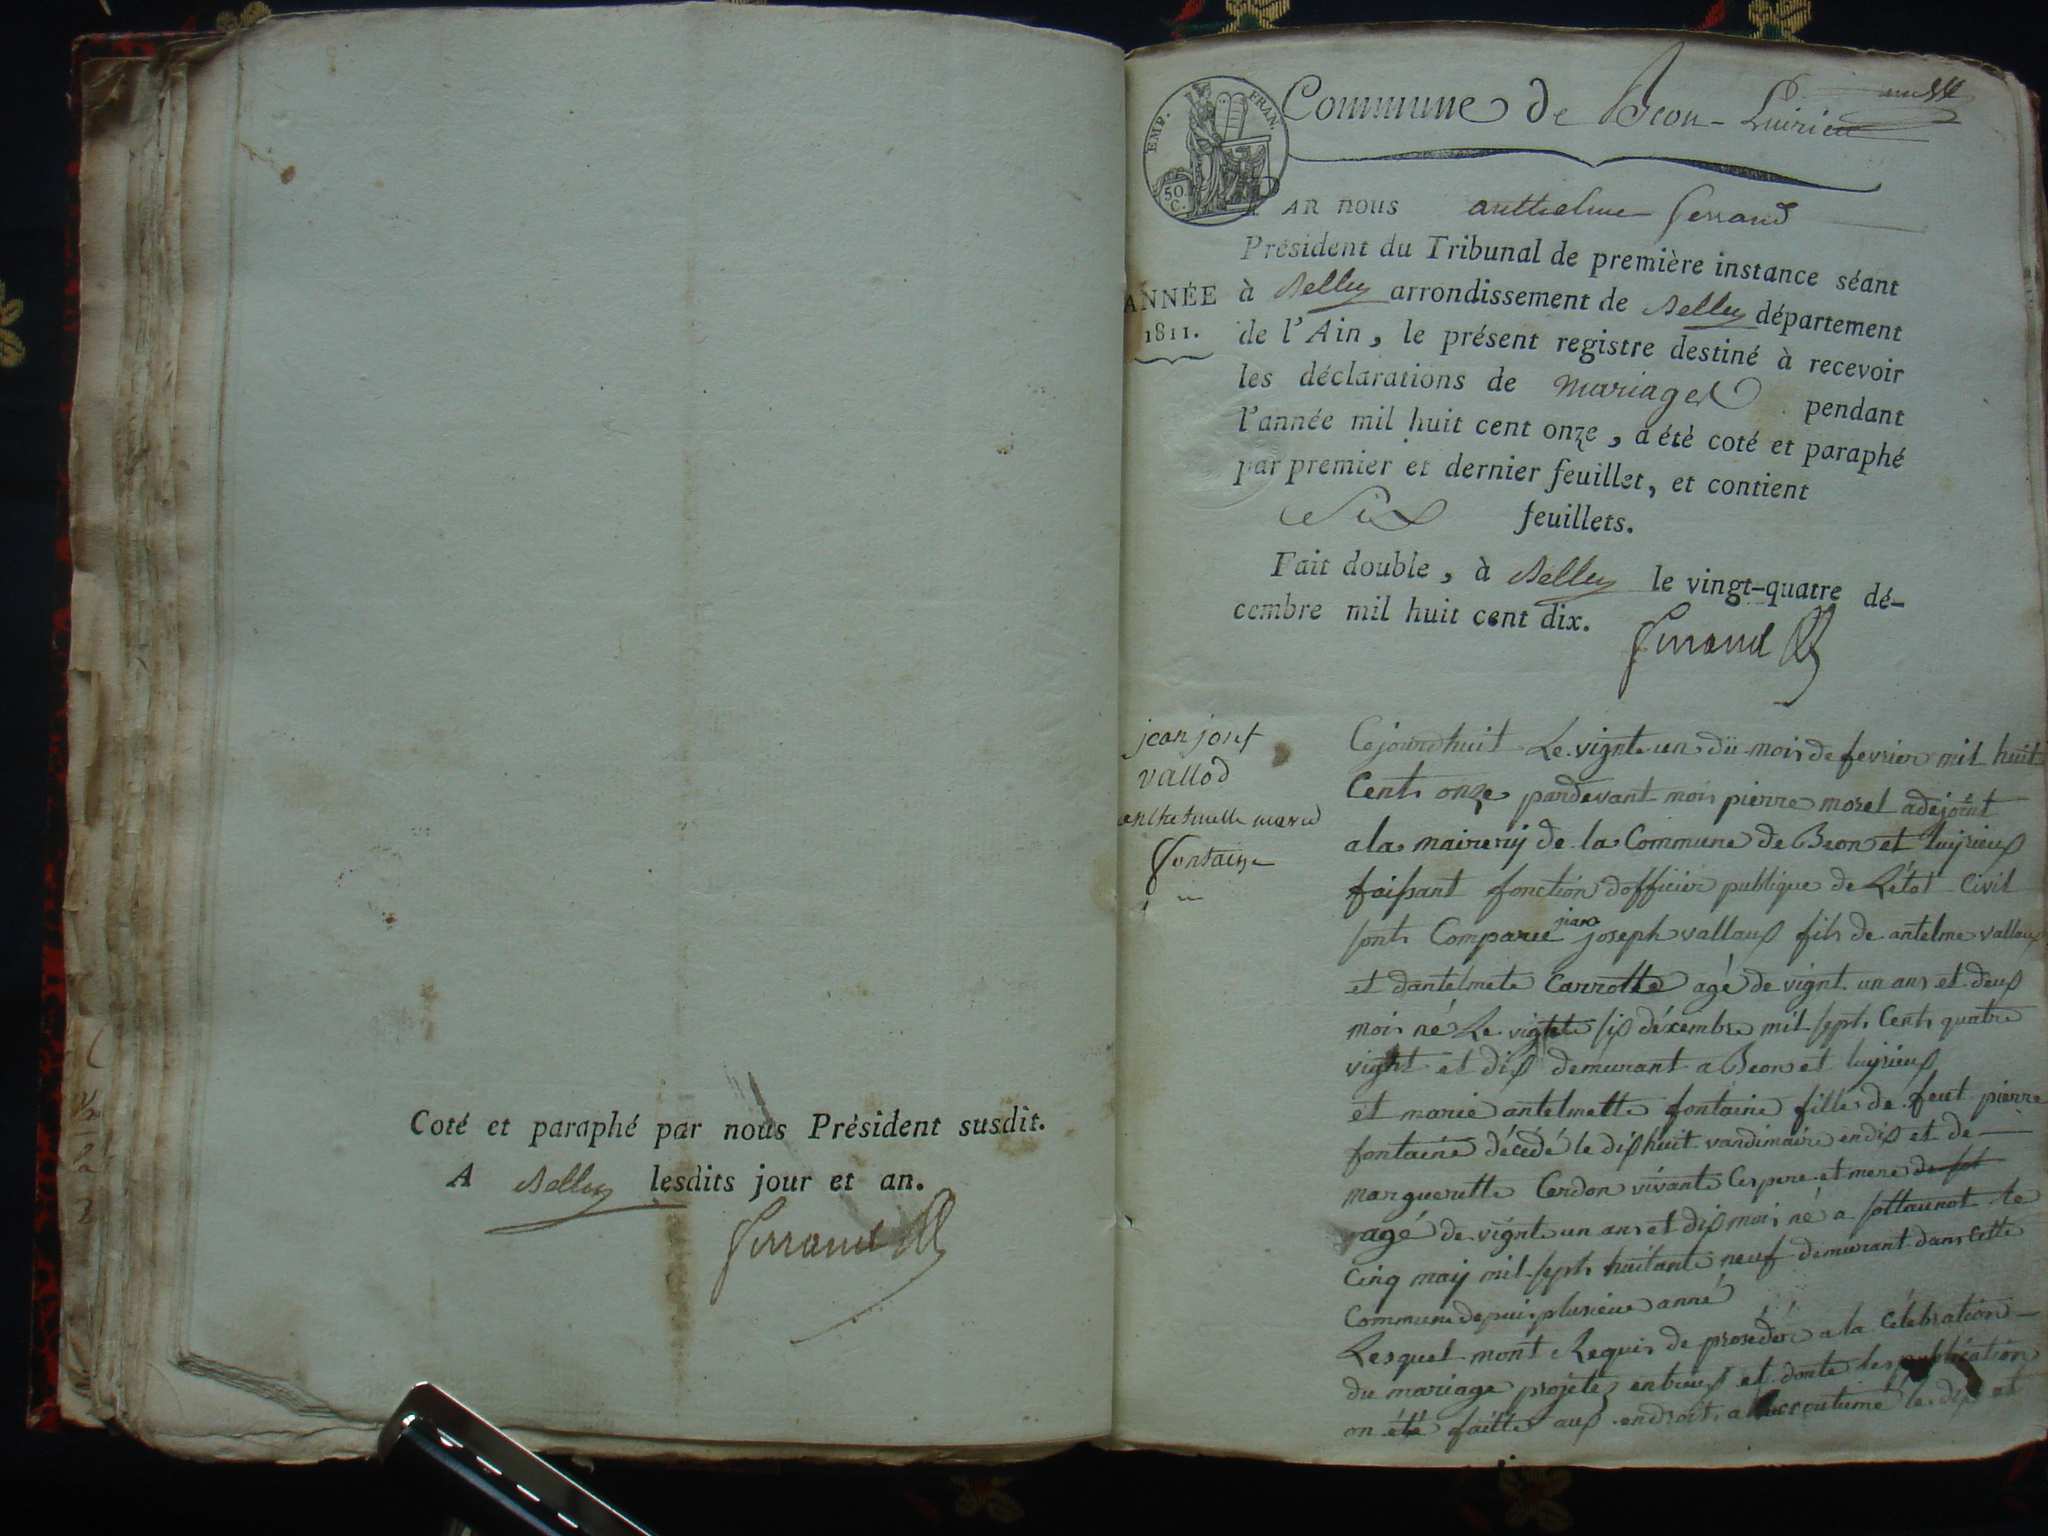 Coté et paraphé par nous Président susdit.
A Belley lesdits jour et an.
Ferrand
Commune de Beon-Luirieu
EMP. FRAN.
50 C.
PAR nous anthelme ferrand
Président du Tribunal de première instance séant
ANNÉE
1811.
à Belley arrondissement de Belley département
de l'Ain, le présent registre destiné à recevoir
les déclarations de mariages pendant
l'année mil huit cent onze, a été coté et paraphé
par premier et dernier feuillet, et contient
Six feuillets.
Fait double, à Belley le vingt-quatre dé-
cembre mil huit cent dix.
Ferrand
jean josef
vallod
marie
fontaine
Cejourdhuit Le vignt un du mois de fevrier mil huit
Cents onze pardevant mois pierre morel adejoint
a la mairerij de la Commune de Beon et luijrieux
faissant fonction dofficier publique de Létat Civil
sonts Comparue jean joseph vallaux fils de antelme vallaux
et dantelmete Carrotte agé de vignt un ans et deux
mois né Le vignte six déxembre mil septs Cents quatre
vignt et dix demurant a Beon et luijrieux
et marie antelmette fontaine fille de feut pierre
fontaine décédé le dix huit vandimaire en dix et de
marguerette Cerdon vivante Ces pere et mere
agé de vignte un ans et dix mois né a le
Cinq maij mil septs huitante neuf demurant dans cette
Commune depuis plusieur anné
Lesquel mont Requis de proséder a la Célébration
du mariage projetez entreux et donte les publication
on été faitte aux endroits a accoutumé le dix et